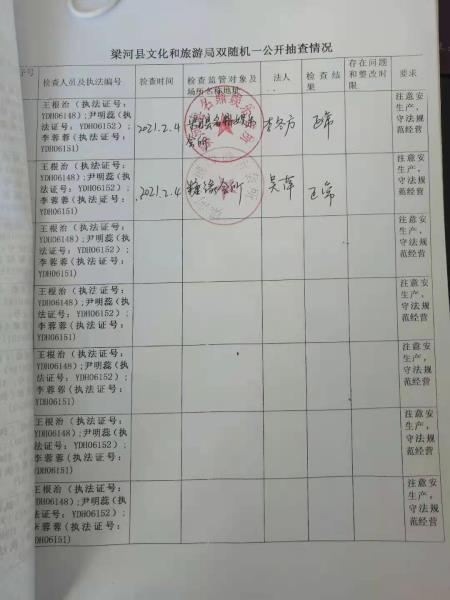 梁河县文化和旅游局双随机一公开抽查情况
序号
检查人员及执法编号
检查时间
检查监管对象及
场所名称地址
法人
检查结
果
存在问题
和整改时
限
要求
王根治(执法证号:
YDH06148);尹明蕊(执
法证号:YDH06152);
李蓉蓉(执法证号:
YDH06151)
2021.2.4
会所
正常
注意安
全生产,
守法规
范经营
王根治(执法证号:
YDH06148);尹明蕊(执
法证号:YDH06152);
李蓉蓉(执法证号:
YDH06151)
2021.2.4
会所
正常
注意安
全生产,
守法规
范经营
王根治(执法证号:
YDH06148);尹明蕊(执
法证号:YDH06152);
李蓉蓉(执法证号:
YDH06151)
注意安
全生产,
守法规
范经营
王根治(执法证号:
YDH06148);尹明蕊(执
法证号:YDH06152);
李蓉蓉(执法证号:
YDH06151)
注意安
全生产,
守法规
范经营
王根治(执法证号:
YDH06148);尹明蕊(执
法证号:YDH06152);
李蓉蓉(执法证号:
YDH06151)
注意安
全生产,
守法规
范经营
王根治(执法证号:
YDH06148);尹明蕊(执
法证号:YDH06152);
李蓉蓉(执法证号:
YDH06151)
注意安
全生产,
守法规
范经营
王根治(执法证号:
YDH06148);尹明蕊(执
法证号:YDH06152);
李蓉蓉(执法证号:
YDH06151)
注意安
全生产,
守法规
范经营